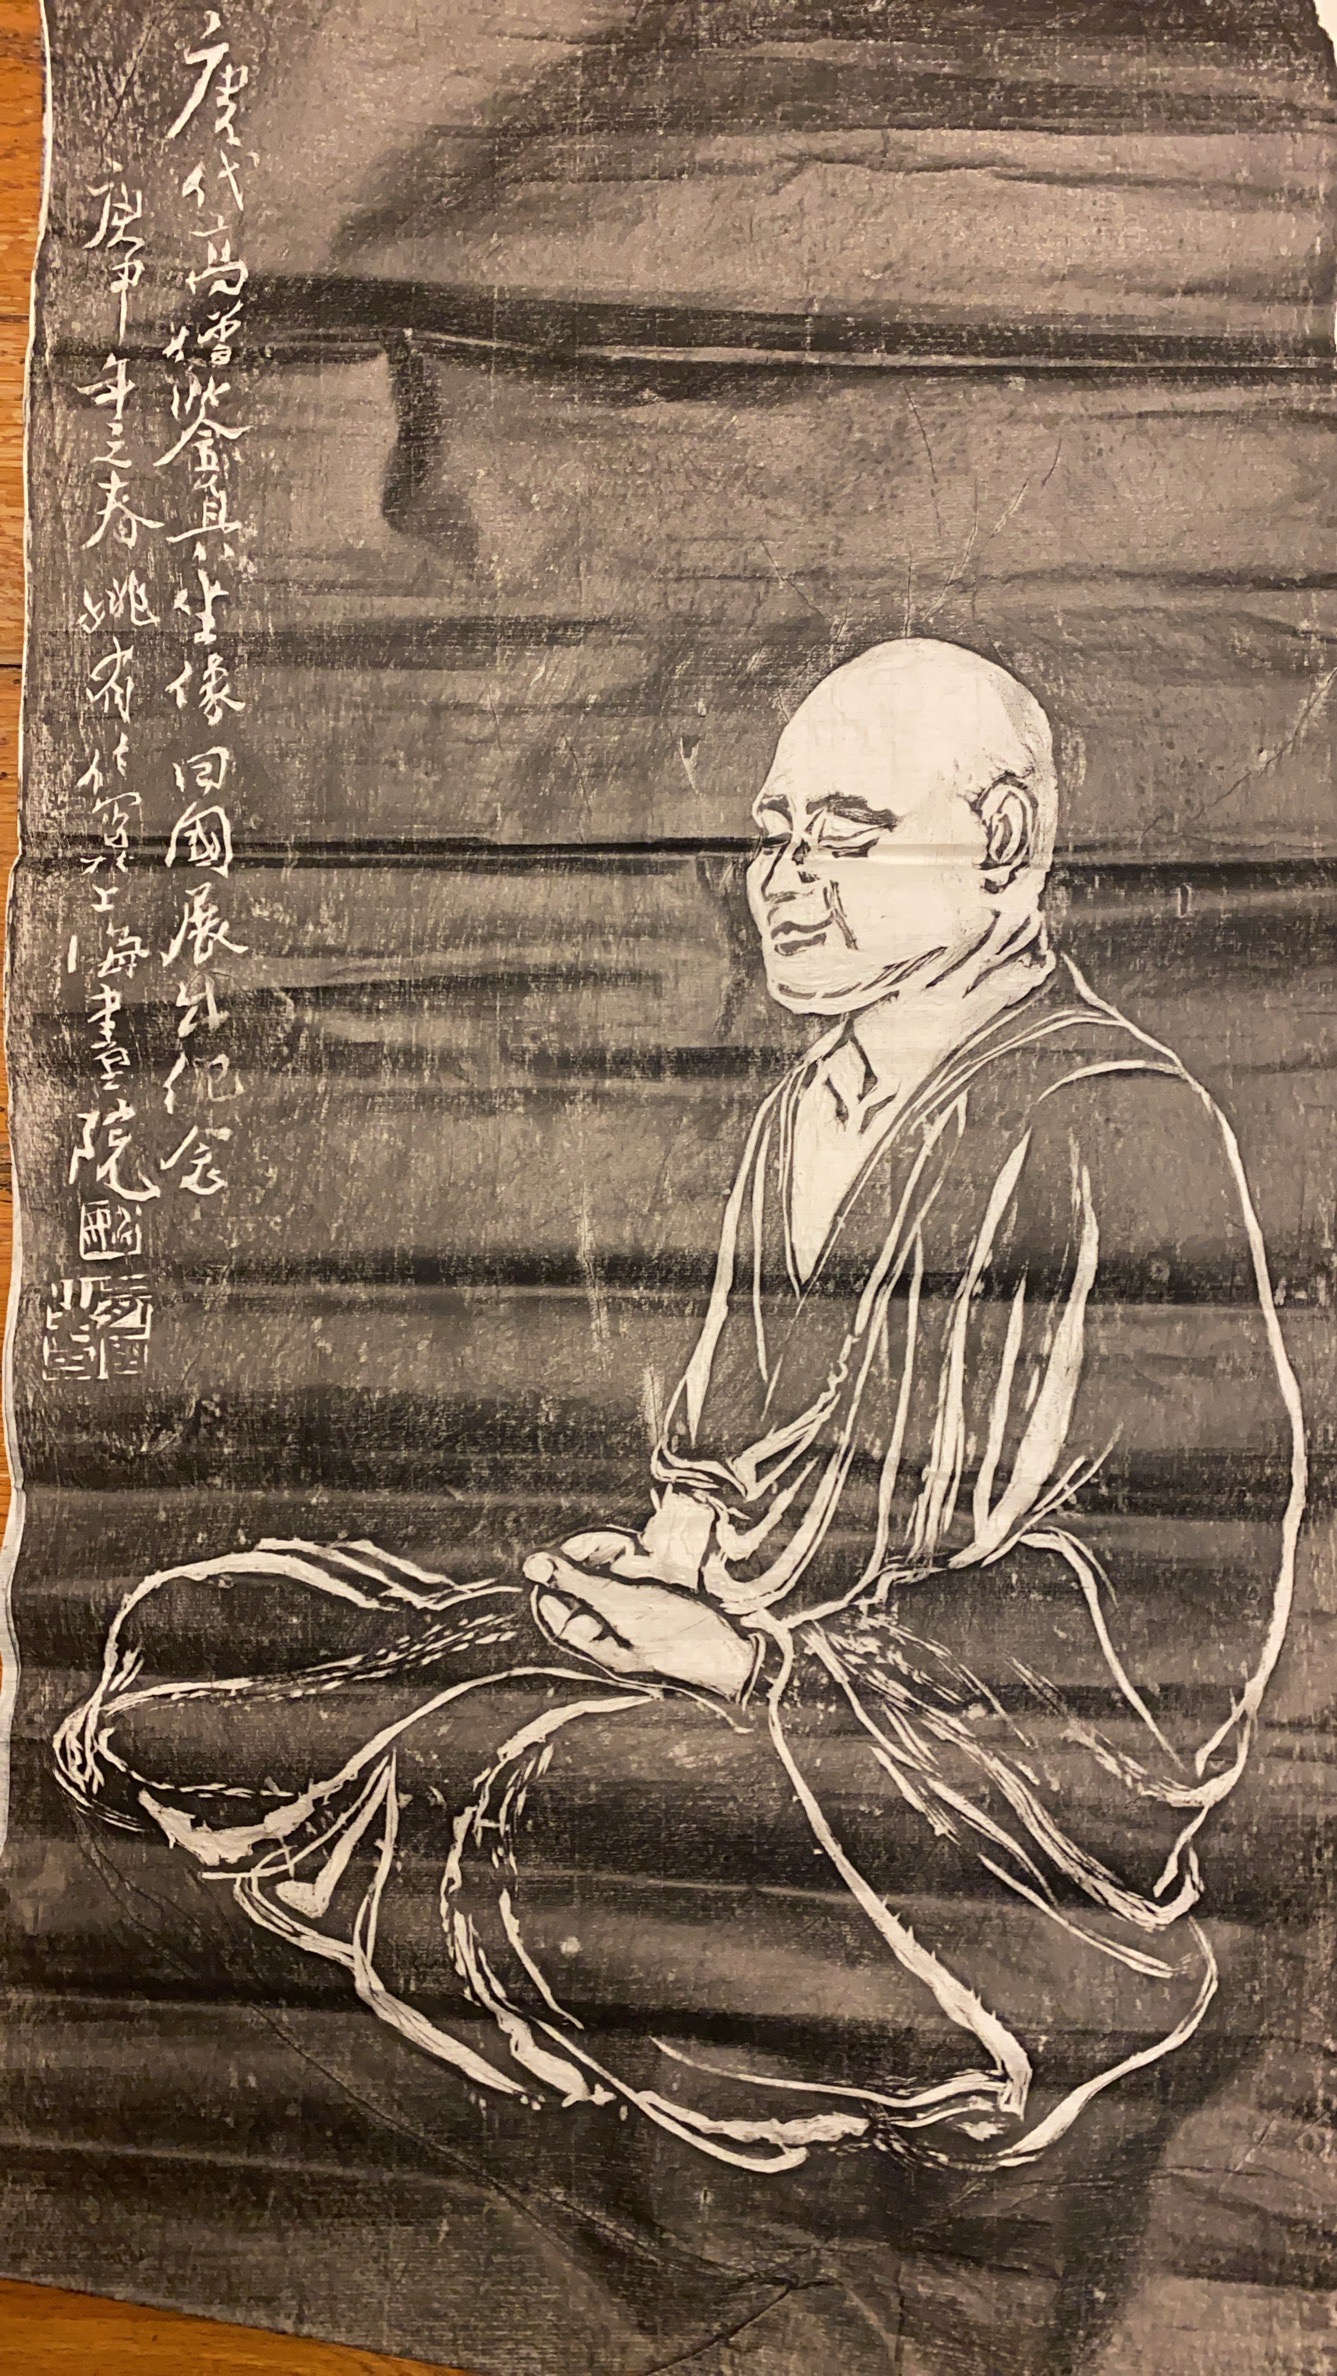 唐代高僧鉴真坐像回國展出纪念
庚申年之春姚有信寫於上海畫院